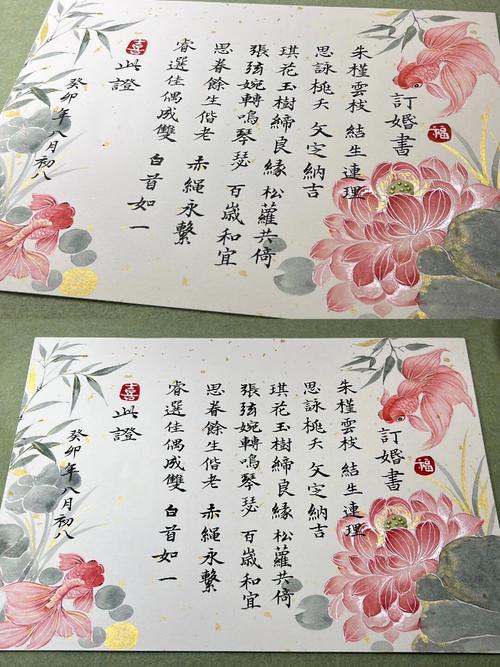 訂婚書
福
朱槿雲枝 結生連理
思詠桃夭 文定納吉
琪花玉樹締良緣 松蘿共倚
張弦婉轉鳴琴瑟 百歲和宜
思眷餘生偕老 赤繩永繫
睿選佳偶成雙 白首如一
囍
此證
癸卯年八月初八
訂婚書
福
朱槿雲枝 結生連理
思詠桃夭 文定納吉
琪花玉樹締良緣 松蘿共倚
張弦婉轉鳴琴瑟 百歲和宜
思眷餘生偕老 赤繩永繫
睿選佳偶成雙 白首如一
囍
此證
癸卯年八月初八